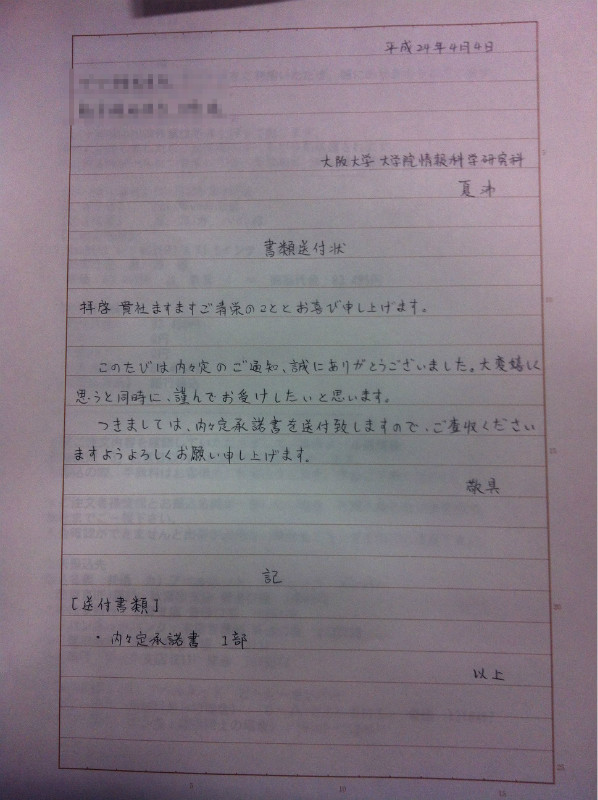 平成24年4月4日
大阪大学 大学院情報科学研究科
夏沛
書類送付状
拝啓 貴社ますますご清栄のこととお喜び申し上げます。
このたびは内々定のご通知、誠にありがとうございました。大変嬉しく
思うと同時に、謹んでお受けしたいと思います。
つきましては、内々定承諾書を送付致しますので、ご査収ください
ますようよろしくお願い申し上げます。
敬具
記
[送付書類]
・内々定承諾書 1部
以上
5
10
15